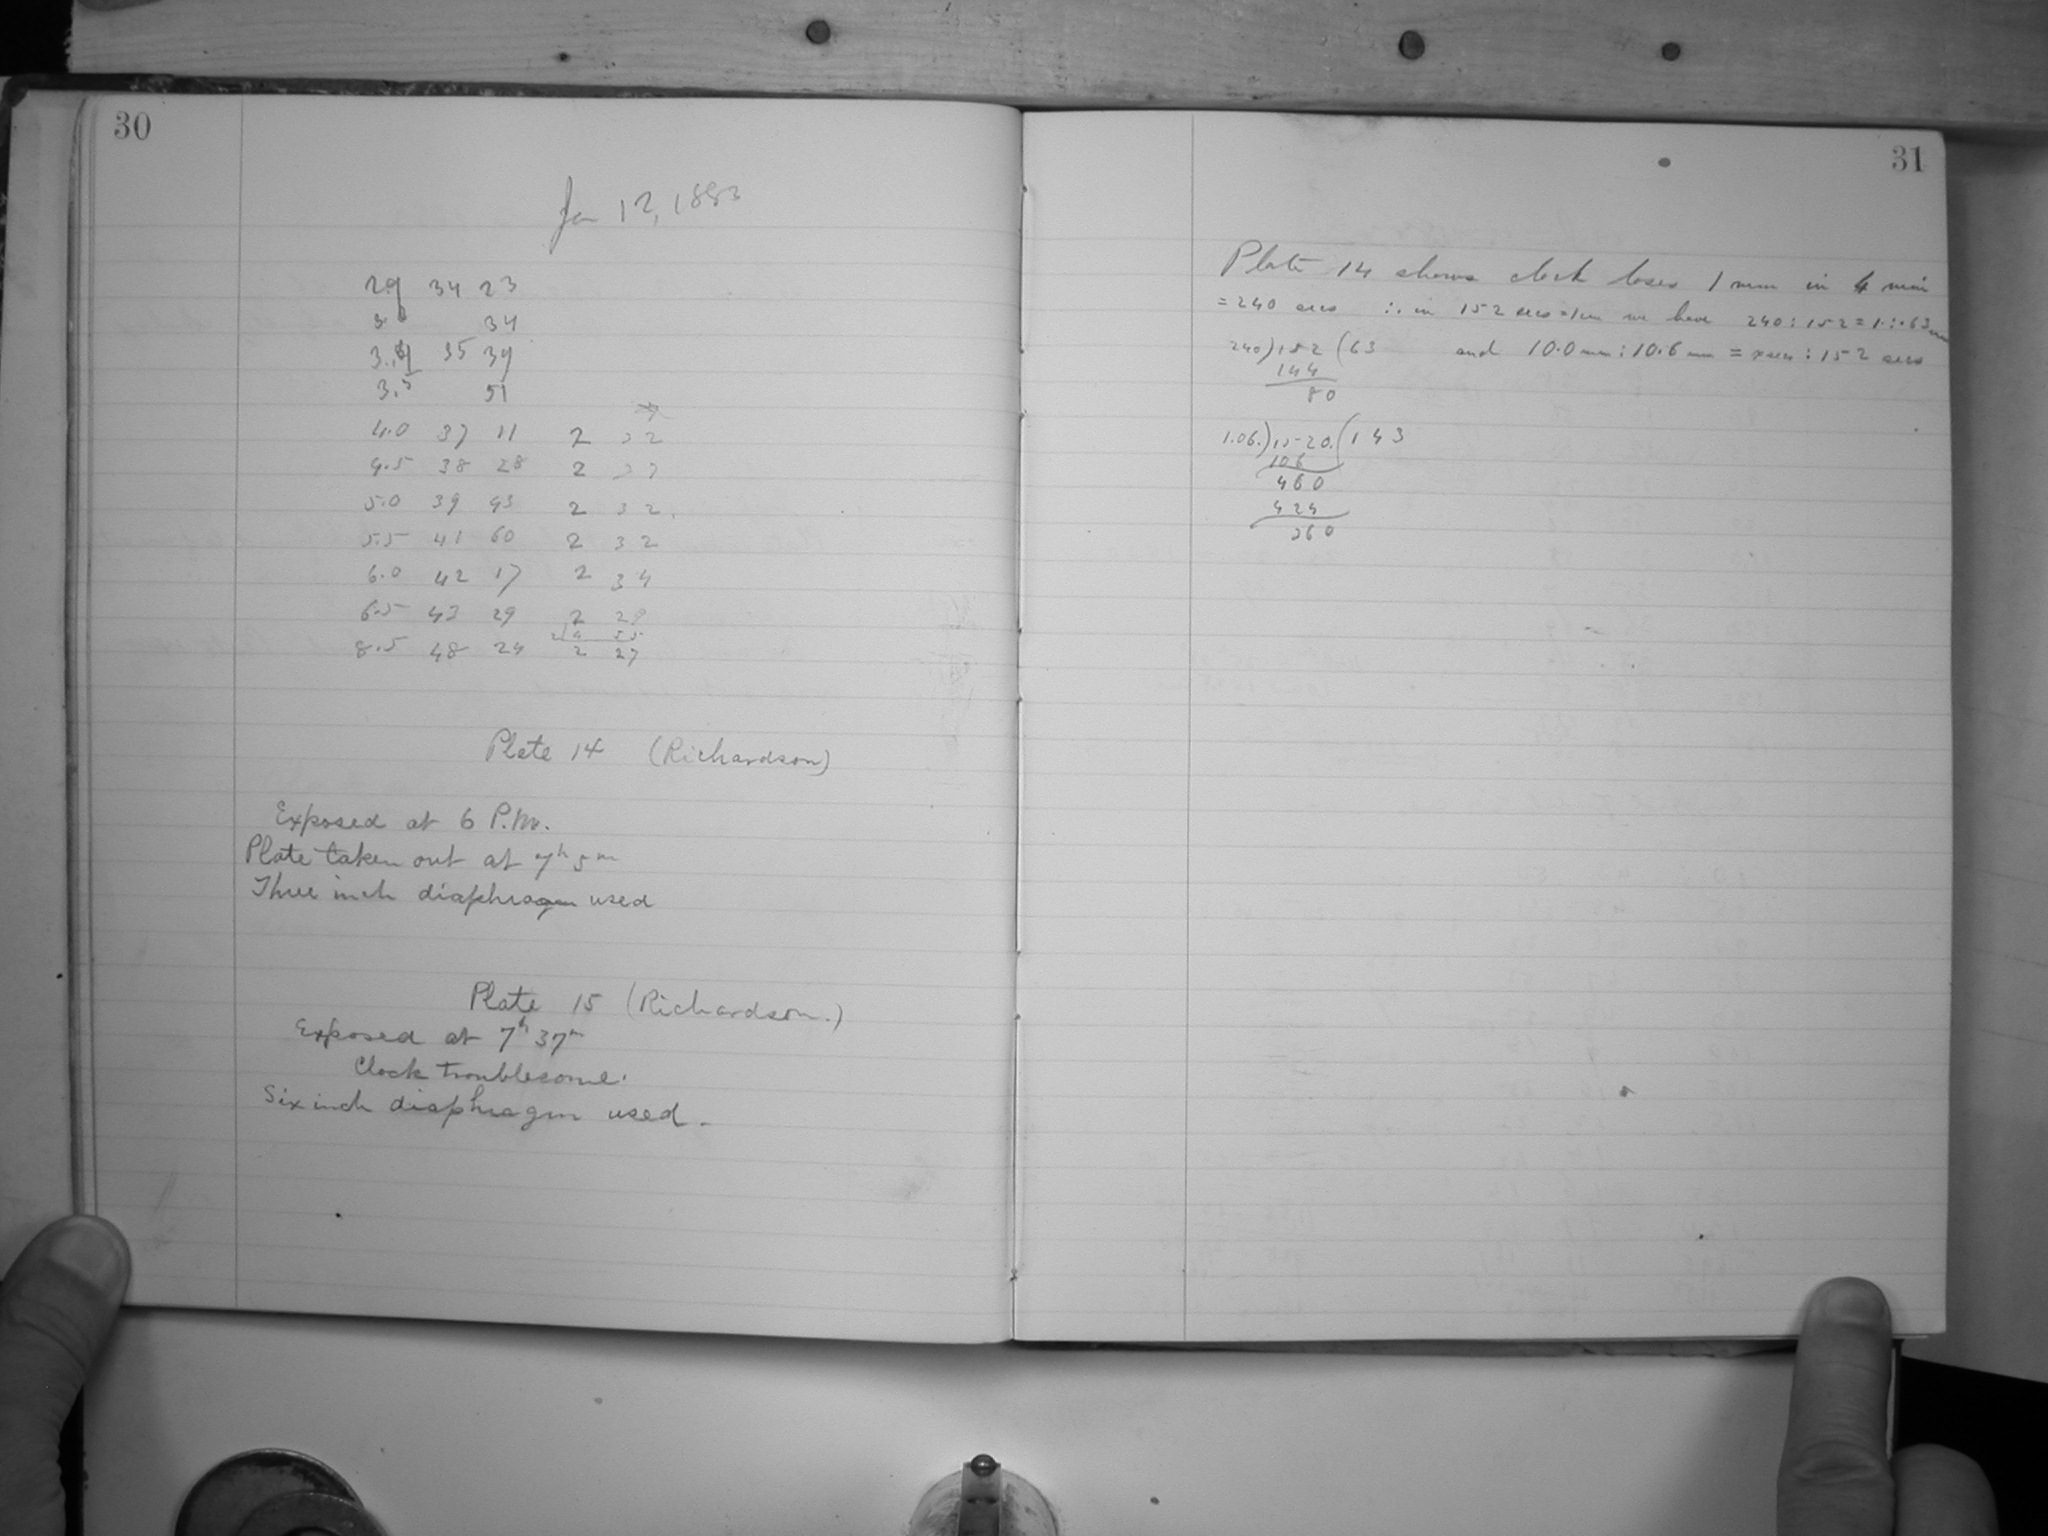 30
Jan 12, 1883
29 34 23
3. 34
3.4 35 39
3.5 51
4.0 37 11 2 32
4.5 38 28 2
5.0 39 43 2 32
5.5 41 60 2 32
6.0 42 17 2 34
6.5 43 29 2 28
2 4 55
8.5 48 24 2 27
Plate 14 (Richardson)
Exposed at 6 P.M.
Plate taken out at 7h 5m
Three inch diaphragm used
Plate 15 (Richardson.)
Exposed at 7h 37m
Clock troublesome.
Six inch diaphragm used.
31
Plate 14 shows clock loses 1 mm in 4 min
= 240 secs ∴ in 152 secs = 1cm we have 240 : 152 = 1 : .63 mm
240)152(63 and 10.0 mm : 10.6 mm = x secs : 152 secs
144
80
1.06.)1520.(143
106
460
424
360